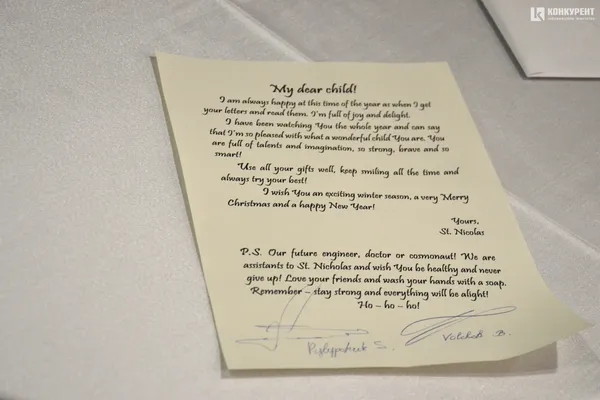 КОНКУРЕНТ
My dear child!
I am always happy at this time of the year as when I get
your letters and read them. I'm full of joy and delight.
I have been watching You the whole year and can say
that I'm so pleased with what a wonderful child You are. You
are full of talents and imagination, so strong, brave and so
smart!
Use all your gifts well, keep smiling all the time and
always try your best!
I wish You an exciting winter season, a very Merry
Christmas and a happy New Year!
Yours,
St. Nicolas
P.S. Our future engineer, doctor or cosmonaut! We are
assistants to St. Nicholas and wish You be healthy and never
give up! Love your friends and wash your hands with a soap.
Remember – stay strong and everything will be alight!
Ho – ho – ho!
S.
B.